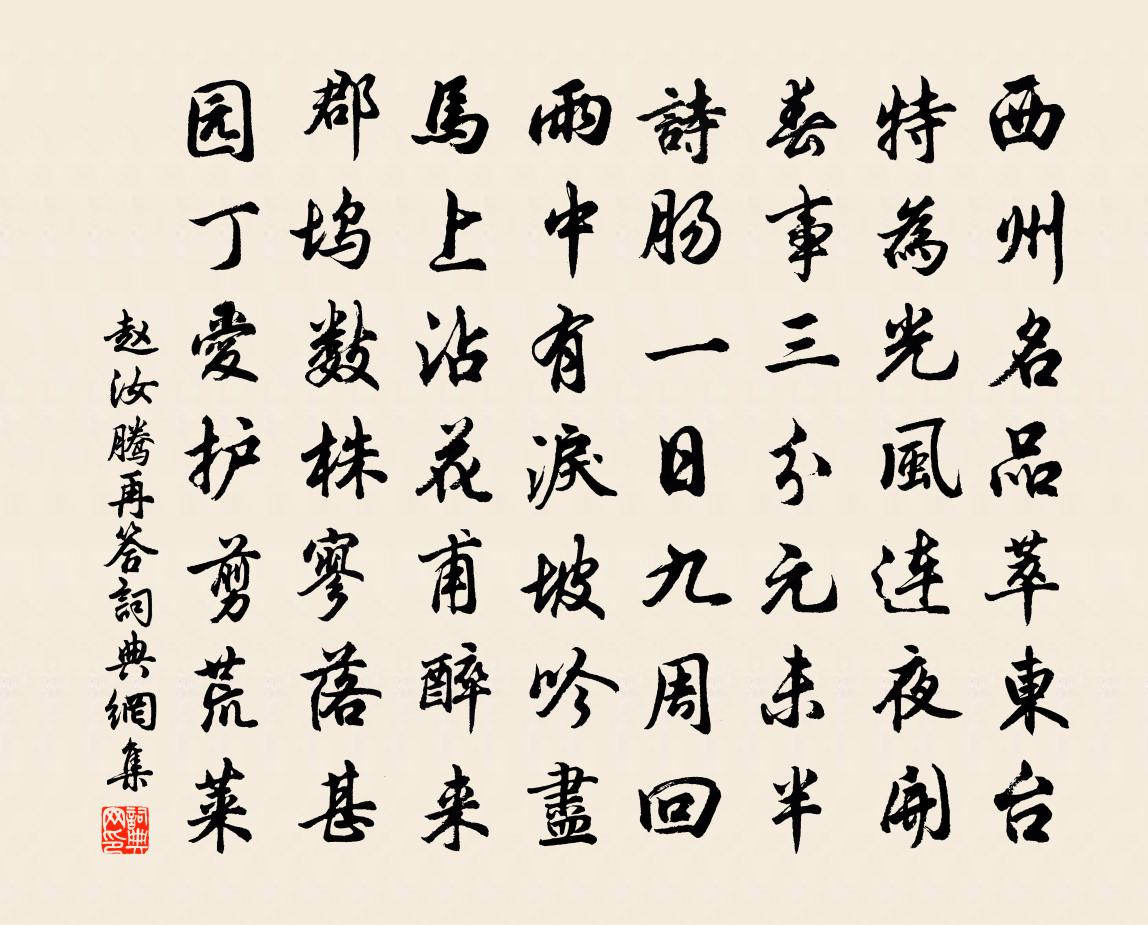 西州名品萃東台
特為光風連夜開
春事三分元未半
詩肠一日九周回
雨中有淚坡吟盡
馬上沾花甫醉来
郡坞數株寥落甚
园丁愛护剪荒莱
赵汝腾再答詞典網集
詞典网印